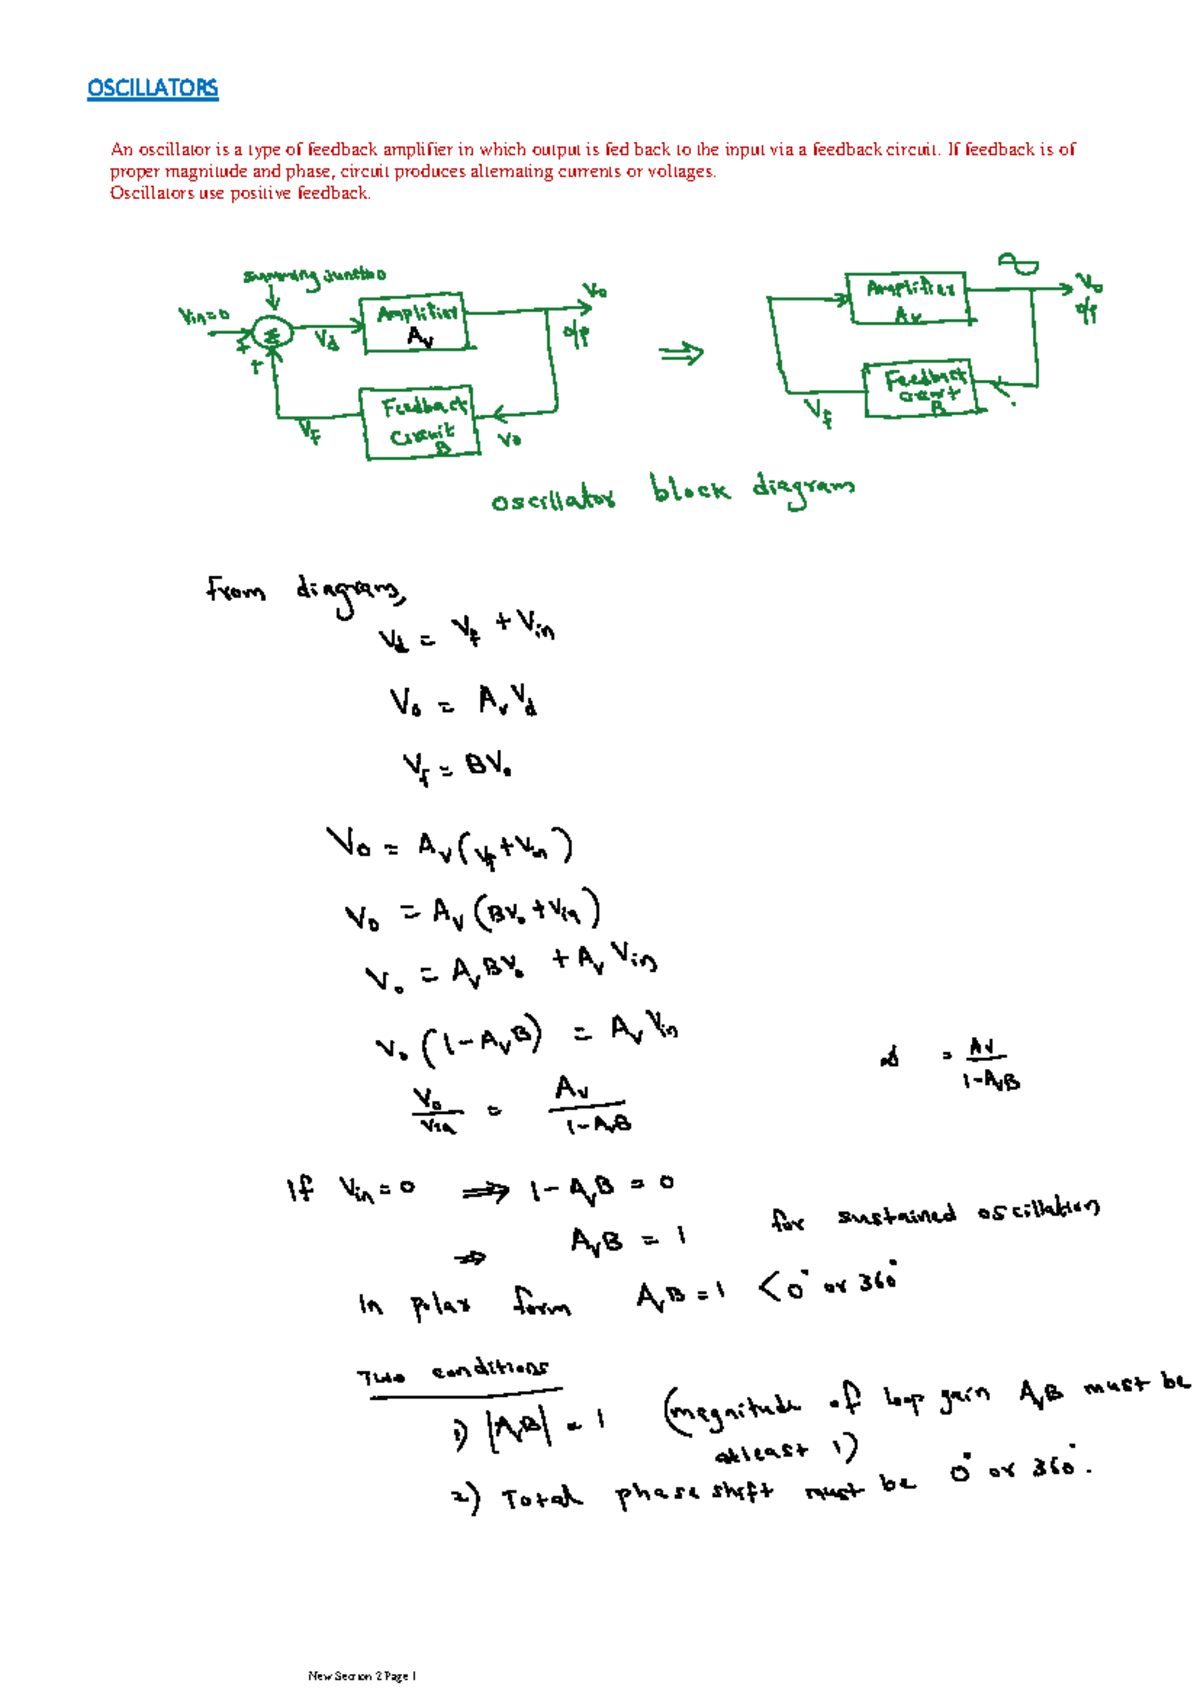 OSCILLATORS
An oscillator is a type of feedback amplifier in which output is fed back to the input via a feedback circuit. If feedback is of
proper magnitude and phase, circuit produces alternating currents or voltages.
Oscillators use positive feedback.
summing junction
Vin=0
+
+
Σ
Vd
Amplifier
Av
Vo
o/p
Feedback
Circuit
B
Vf
Vo
⇒
Amplifier
Av
Vo
o/p
Feedback
circuit
B
Vf
oscillator block diagram
From diagram,
Vd = Vf + Vin
Vo = Av Vd
Vf = BVo
Vo = Av (Vf + Vin)
Vo = Av (BVo + Vin)
Vo = AvBVo + Av Vin
Vo (1 - AvB) = Av Vin
Vo/Vin = Av/(1 - AvB)
= Av/(1 - AvB)
If Vin = 0 ⇒ 1 - AvB = 0
⇒ AvB = 1 for sustained oscillation
In polar form AvB = 1 < 0° or 360°
Two conditions
1) |AvB| = 1 (magnitude of loop gain AvB must be
atleast 1)
2) Total phase shift must be 0° or 360°.
New Section 2 Page 1